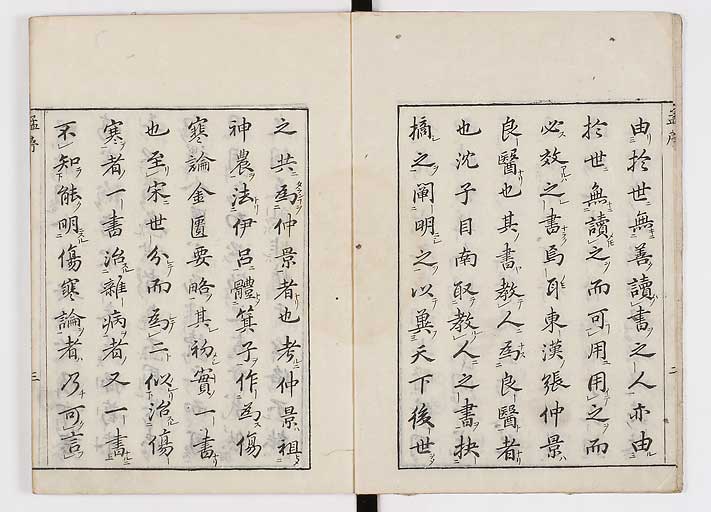 由於世無善讀書之人亦由
於世無讀之而可用用之而
必效之書焉耳東漢張仲景
良醫也其書教人為良醫者
也沈子目南取教人之書抉
摘之闡明之以冀天下後世
之共為仲景者也考仲景祖
神農法伊呂體箕子作為傷
寒論金匱要略其初實一書
也至宋世分而為二似治傷
寒者一書治雜病者又一書
不知能明傷寒論者乃可言
孟序
二
孟序
三